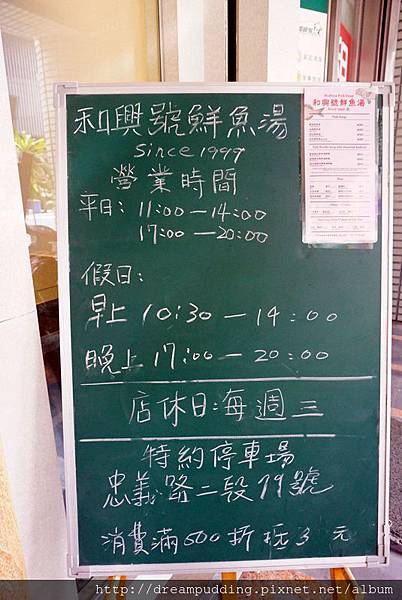 和興號鮮魚湯
since 1997
營業時間
平日: 11:00—14:00
17:00—20:00
假日:
早上 10:30—14:00
晚上 17:00—20:00
店休日:每週三
特約停車場
忠義路二段79號
消費滿500折抵3元
和興號鮮魚湯
http://dreampudding.pixnet.net/album